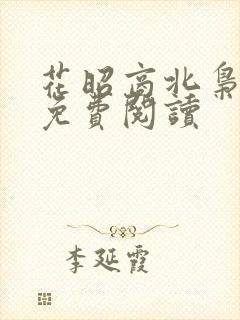 花昭高北梟
免費閱讀
李延霞